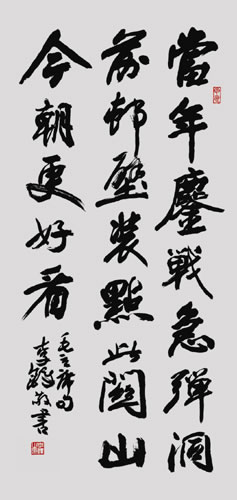 當年鏖戰急彈洞
前邨壁裝點此關山
今朝更好看
毛主席句
李鐸書